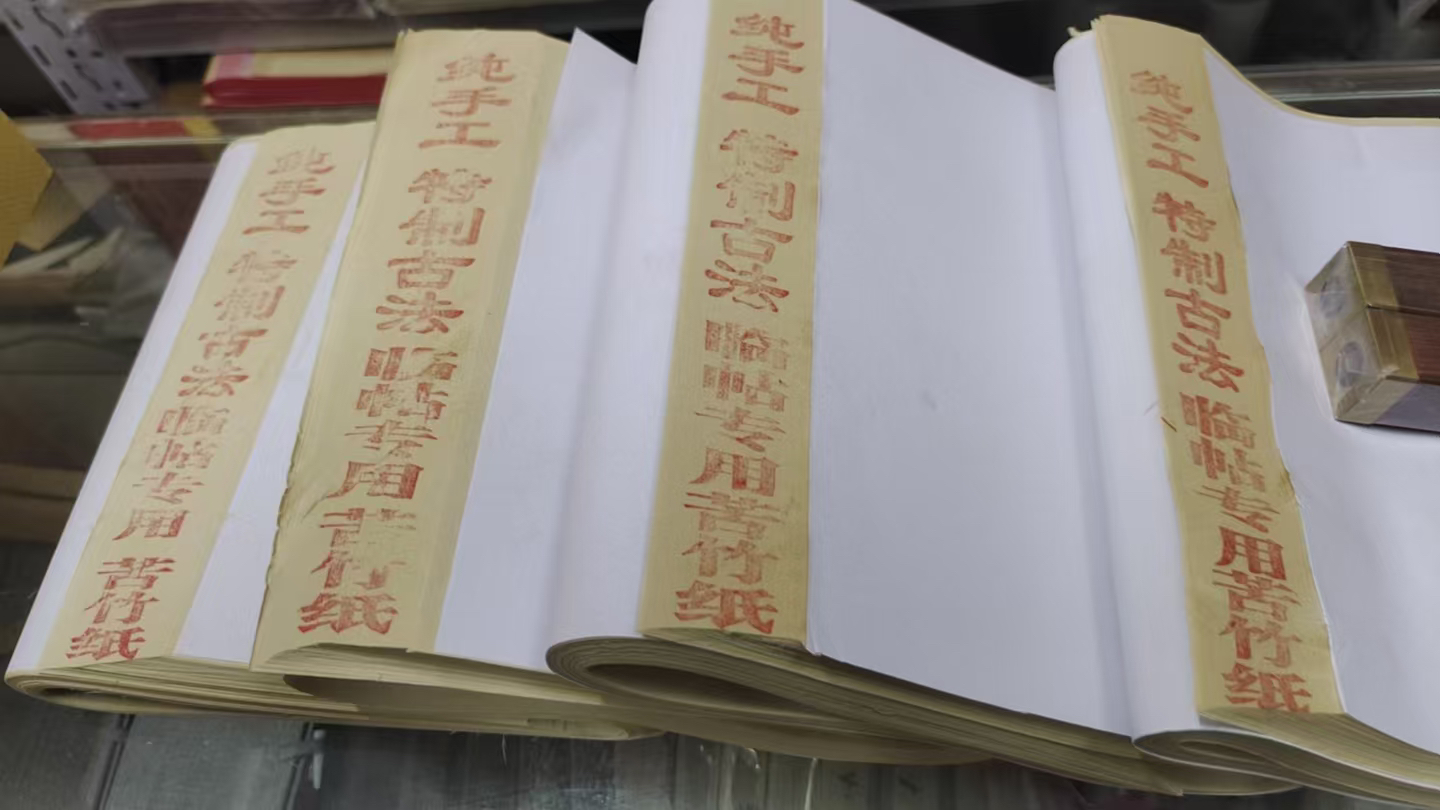 纯手工 特制古法 临帖专用 苦竹纸
纯手工 特制古法 临帖专用 苦竹纸
纯手工 特制古法 临帖专用苦竹纸
纯手工 特制古法 临帖专用苦竹纸